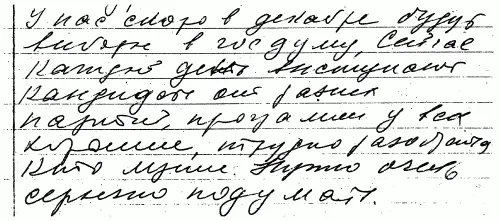 У нас скоро в декабре будут
выборы в госдуму, сейчас
каждый день выступают
кандидаты от разных
партий, программы у всех
хорошие, трудно разобраться
кто лучше. Нужно очень
серьезно подумать.